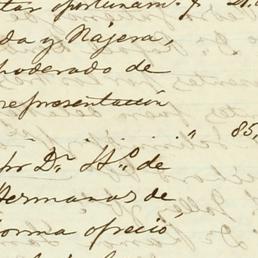 tar oportunam.
da y Nájera,
poderado de
representación
85,
por Dn. Ho. de
Hermanas de
forma ofreció